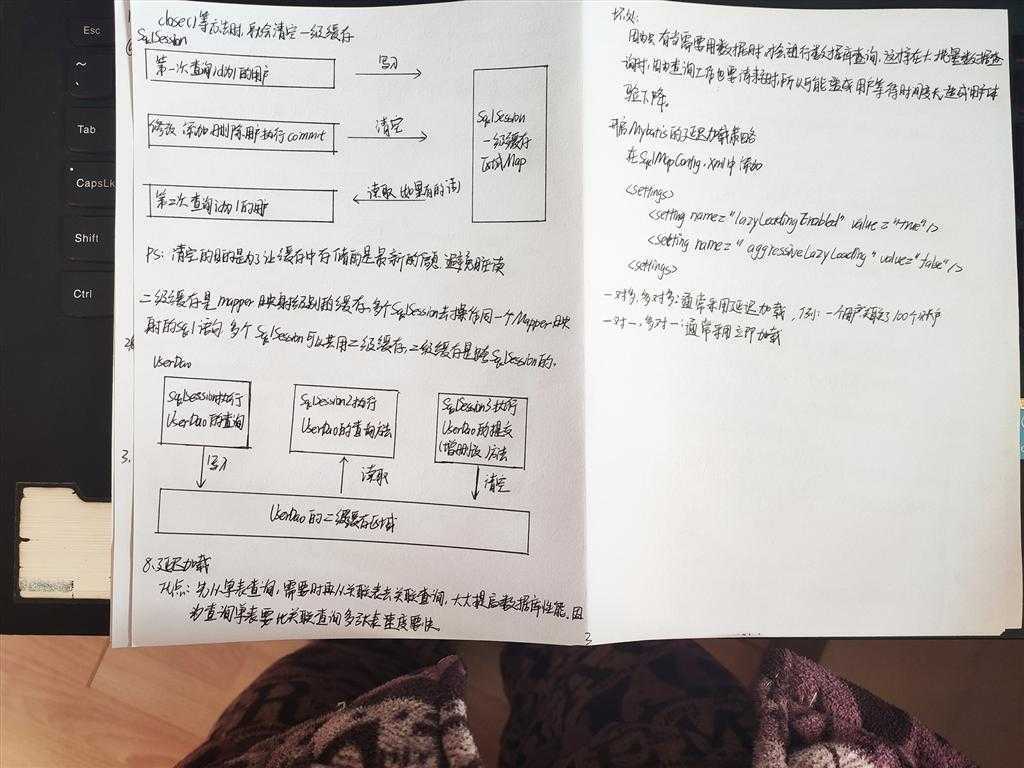 Esc
~
Tab
CapsLk
Shift
Ctrl
close()等方法时,就会清空一级缓存
SqlSession
第一次查询id为1的用户
写入
修改 添加 删除用户执行commit
清空
第二次查询id为1的用户
读取(如果有的话)
SqlSession
一级缓存
区域Map
PS:清空的目的是为了让缓存中存储的是最新的信息,避免脏读
二级缓存是mapper映射级别的缓存,多个SqlSession去操作同一个Mapper映
射的sql语句,多个SqlSession可以共用二级缓存,二级缓存是跨SqlSession的.
UserDao
SqlSession1执行
UserDao的查询
SqlSession2执行
UserDao的查询方法
SqlSession3执行
UserDao的提交
(增删改)方法
写入
读取
清空
UserDao的二级缓存区域
3.
8.延迟加载
优点:先从单表查询,需要时再从关联表去关联查询,大大提高数据库性能,因
为查询单表要比关联查询多张表速度要快.
3
坏处:
因为只有当需要用数据时,才会进行数据库查询,这样在大批量数据查
询时,因为查询工作也要消耗时,所以可能造成用户等待时间变长,造成用户体
验下降.
开启Mybatis的延迟加载策略
在SqlMapConfig.xml中添加
<settings>
<setting name="lazyLoadingEnabled" value="true"/>
<setting name="aggressiveLazyLoading" value="false"/>
<settings>
一对多,多对多:通常采用延迟加载,例:一个用户有100个账户
一对一,多对一:通常采用立即加载